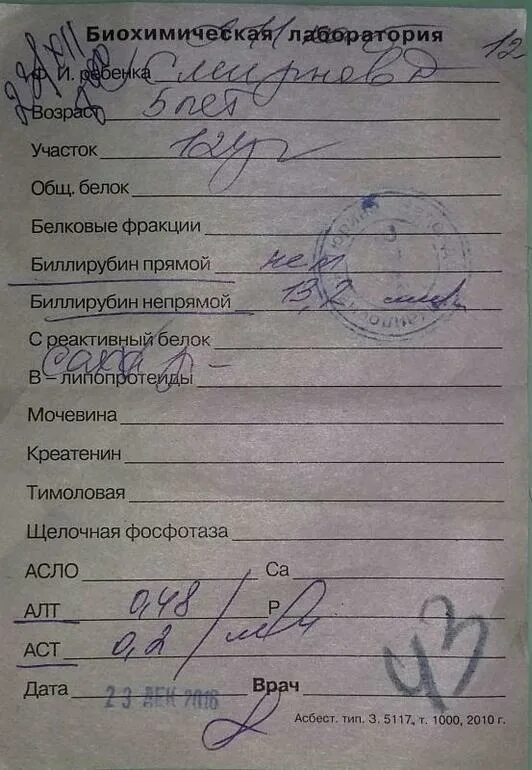 Биохимическая лаборатория
12
Ф. И. ребенка Смирнова Д
Возраст 5 лет
Участок 12
Общ. белок
Белковые фракции
Биллирубин прямой нет
Биллирубин непрямой 13,2
С реактивный белок
сахар -
В – липопротеиды
Мочевина
Креатенин
Тимоловая
Щелочная фосфотаза
АСЛО Са
АЛТ 0,48 Р
АСТ 0,2
Дата 23 ДЕК 2016 Врач
43
Асбест. тип. З. 5117, т. 1000, 2010 г.